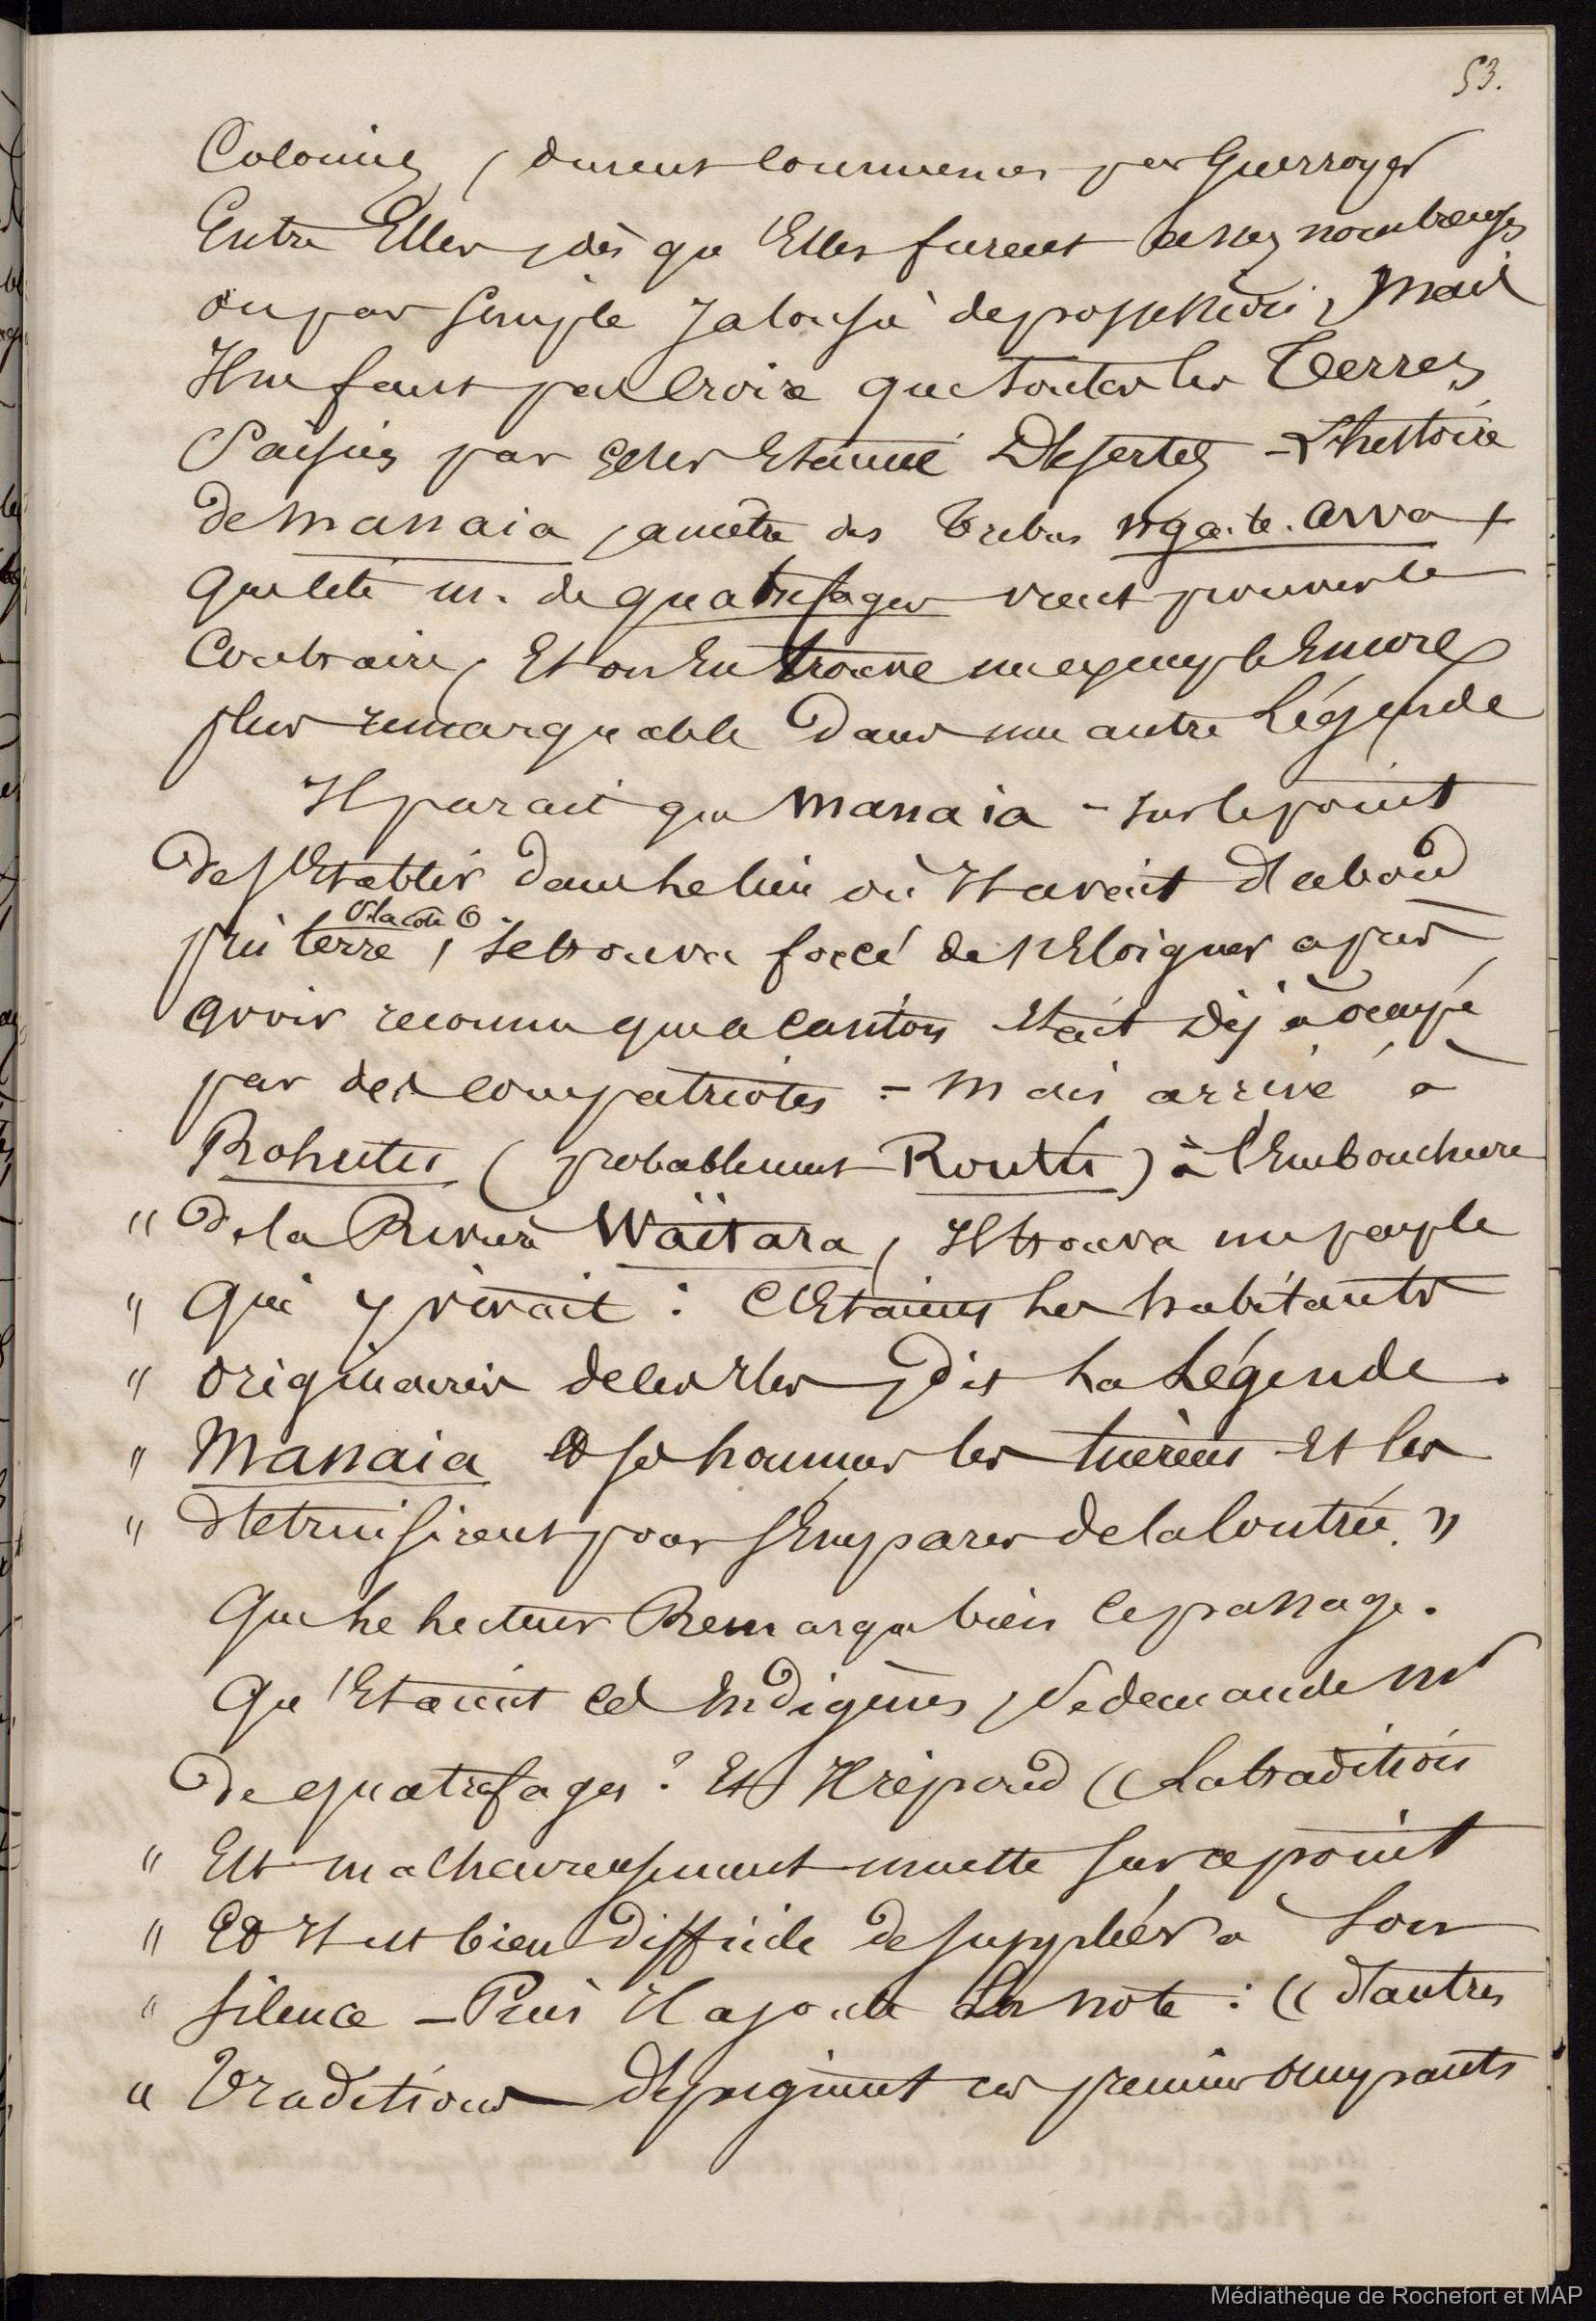 53.
Colonies, durent commencer par Guerroyer
Entre Elles, dès qu'Elles furent assez nombreuses
ou par simple Jalousie de possession, Mais
Il ne faut pas Croire que toutes les Terres
Saisies par Elles Etaient Désertes - L'histoire
de Manaia, ancêtre des Tribus nga.te.awa +
que cite M. de quatrefages vient prouver le
Contraire, Et on En trouve un exemple Encore
plus remarquable Dans une autre Légende
Il parait que Manaia - sur le point
de s'Etablir dans le lieu où Il avait d'abord
à la côte O.
pris terre, se trouva forcé de s'Eloigner après
avoir reconnu que ce canton Etait Déjà occupé
par des compatriotes = Mais arrivé à
Rohutu (probablement Routu) à l'Embouchure
" de la Rivière Waïtara, Il trouva un peuple
" qui y vivait : C'Etaient les habitants
" originaires de ces Iles, dit la Légende.
" Manaia & ses hommes les tuèrent Et les
" détruisirent pour s'Emparer de la Contrée. "
Que le lecteur Remarque bien ce passage.
Qu'Etaient ces Indigènes, se demande Mr
de quatrefages ? Et Il répond (( La tradition
" Est malheureusement muette sur ce point
" Et Il est bien difficile de suppléer à son
" silence - Puis Il ajoute En note : (( d'autres
" Traditions dépeignent ces premiers occupants
Médiathèque de Rochefort et MAP